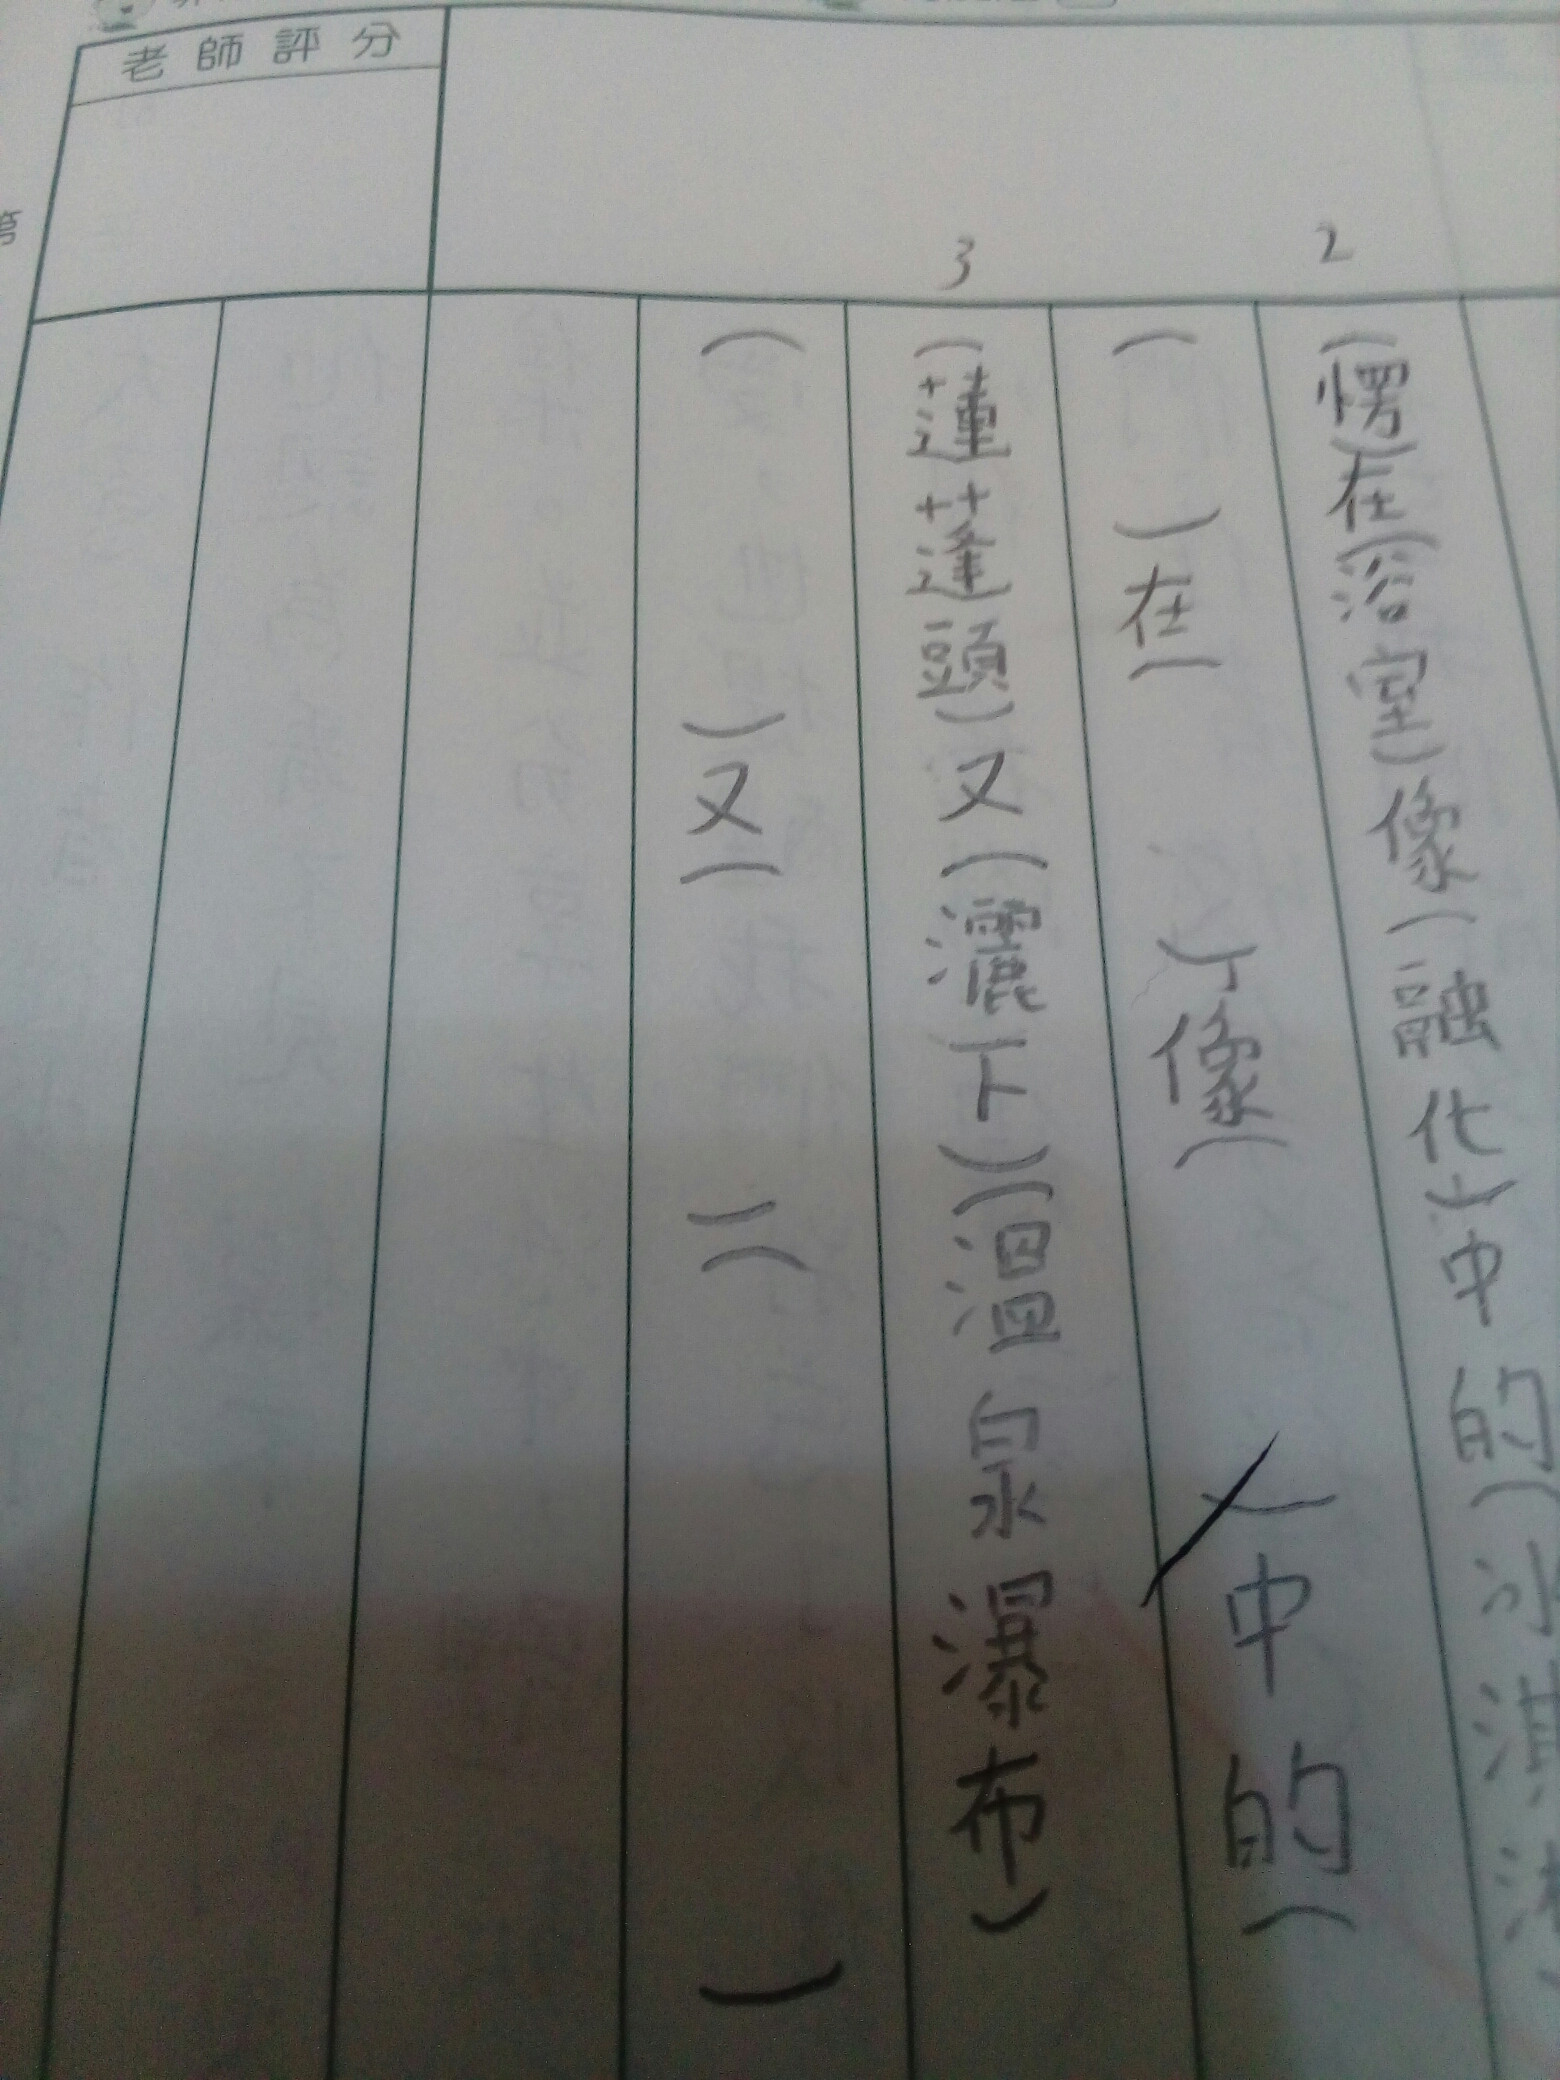 老師評分
2
(愣)在(浴室)像(融化)中的(冰淇淋
(　)在(　)像(　)中的(
3
(蓮蓬頭)又(灑下)(溫泉瀑布)
(　)又(　)(　)
第